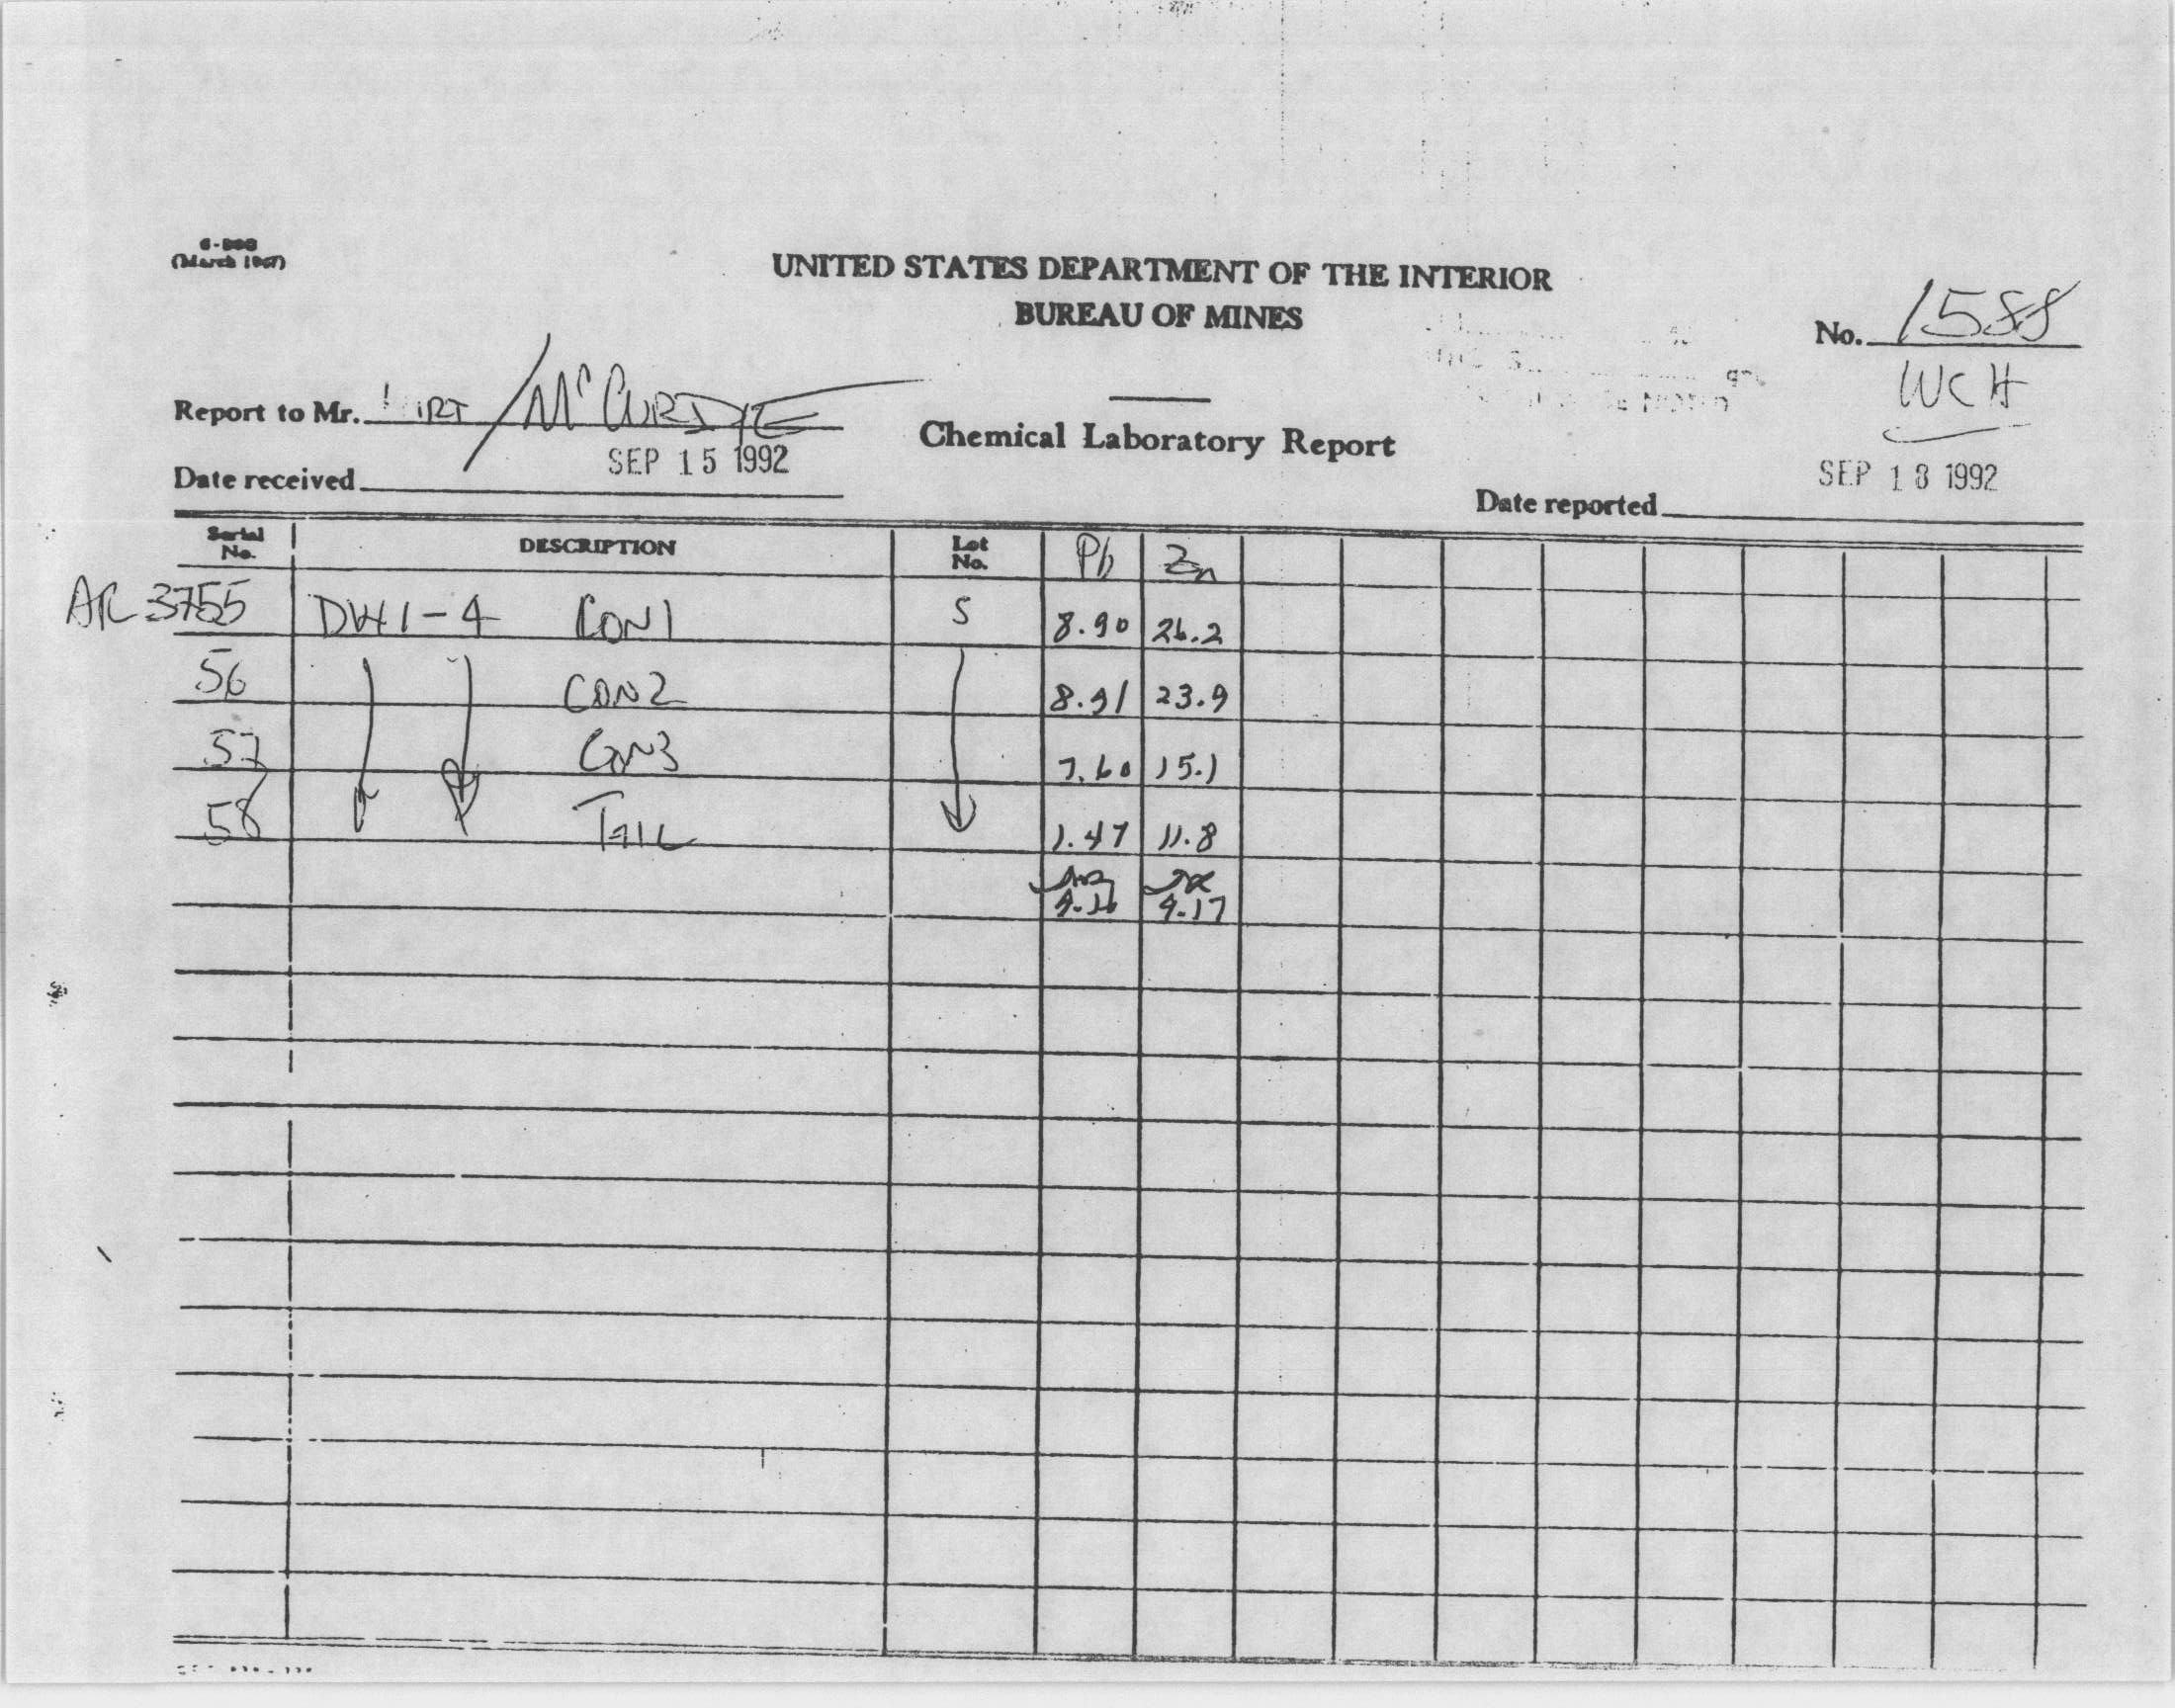 (March 1967)
UNITED STATES DEPARTMENT OF THE INTERIOR
BUREAU OF MINES
No. 1588
WCH
Report to Mr. McCURDIE
Chemical Laboratory Report
Date received SEP 15 1992
Date reported SEP 18 1992
Serial No. DESCRIPTION Lot No. Pb Zn
AR 3755 DW1-4 CON1 5 8.90 26.2
56 CON2 8.91 23.9
57 CON3 7.60 15.1
58 TAIL 1.47 11.8
9-16 9-17